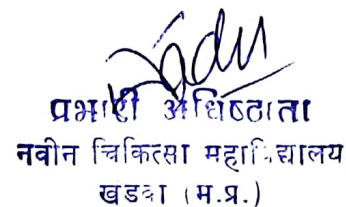 प्रभारी अधिष्ठाता
नवीन चिकित्सा महाविद्यालय
खंडवा (म.प्र.)